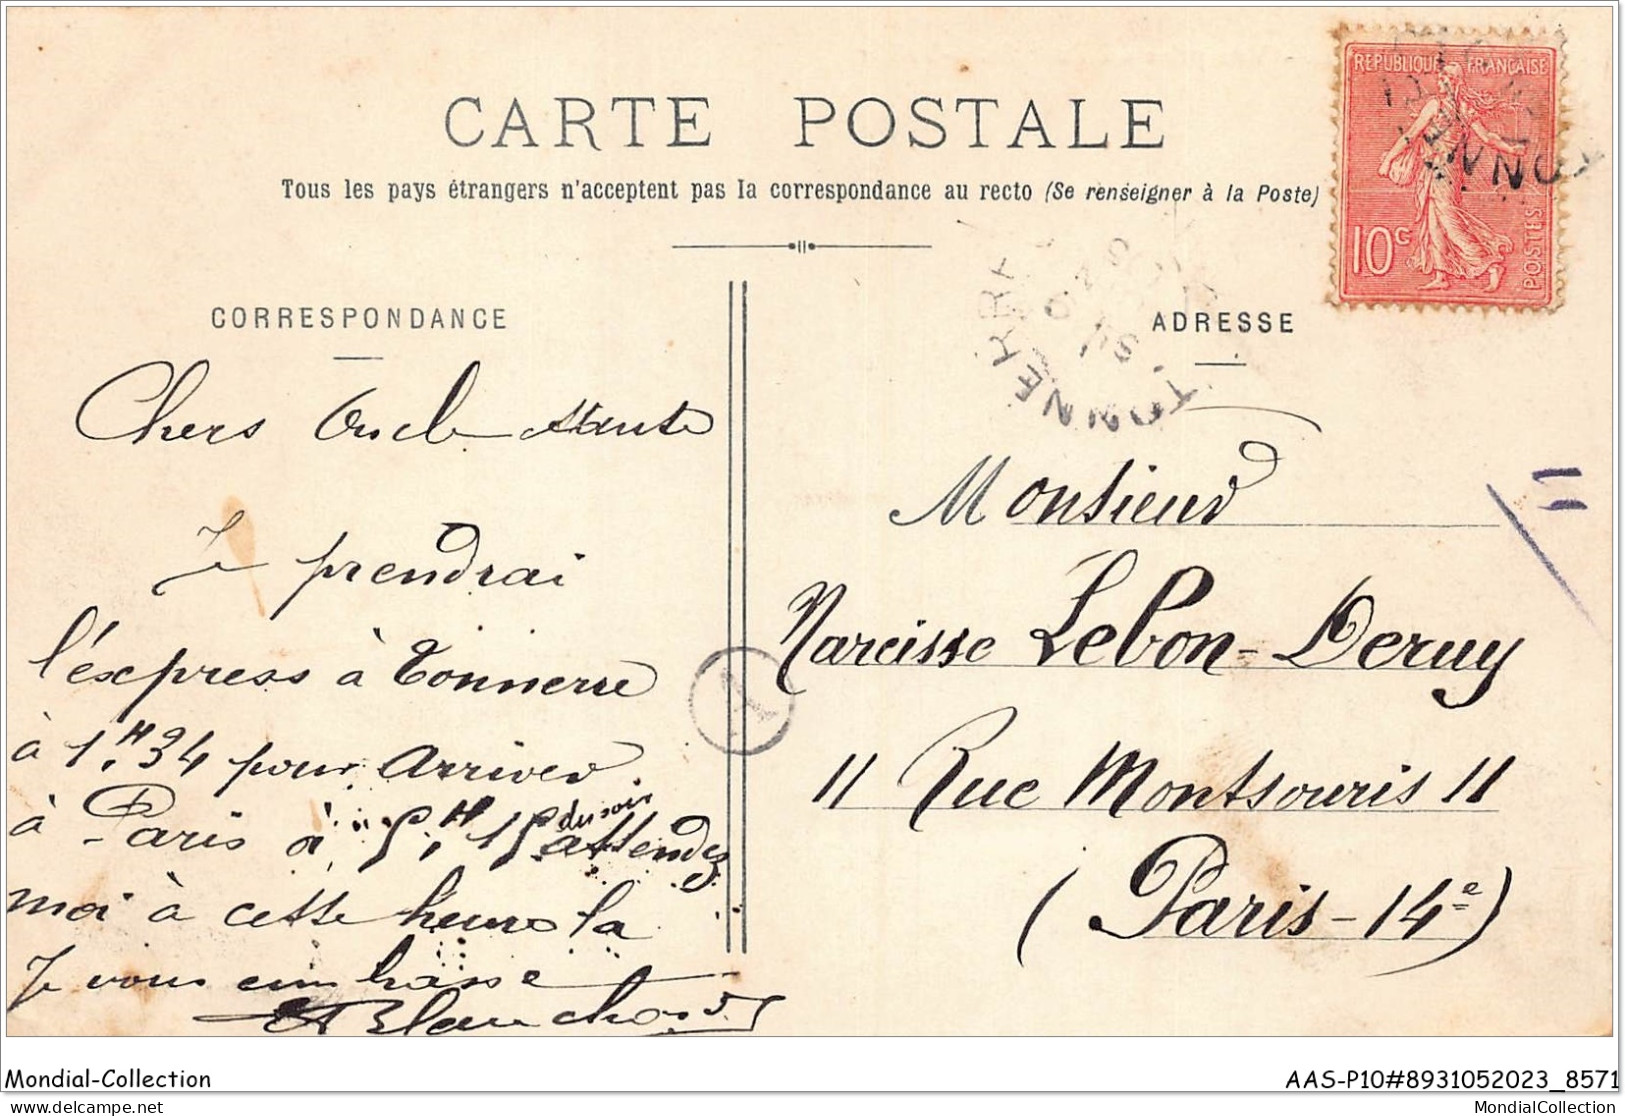 CARTE POSTALE
Tous les pays étrangers n'acceptent pas la correspondance au recto (Se renseigner à la Poste)
REPUBLIQUE FRANÇAISE
10c
POSTES
TONNERRE
CORRESPONDANCE
Chers Oncle & tante
Je prendrai
l'éxpress à Tonnerre
à 1H34 pour arriver
à Paris à 5H15 du soir attendez
moi à cette heure la
Je vous embrasse
Blanchard
ADRESSE
Monsieur
Narcisse Lebon-Deruy
11 Rue Montsouris 11
(Paris-14e)
Mondial-Collection
AAS-P10#8931052023_8571
MondialCollection